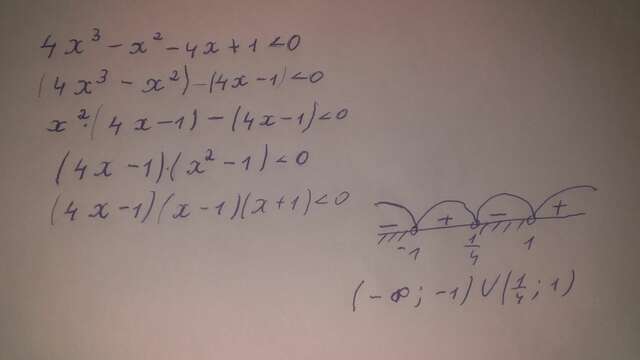 4x³ - x² - 4x + 1 < 0
(4x³ - x²) - (4x - 1) < 0
x² · (4x - 1) - (4x - 1) < 0
(4x - 1) · (x² - 1) < 0
(4x - 1)(x - 1)(x + 1) < 0
- + - +
-1 1/4 1
(-∞; -1) ∪ (1/4; 1)